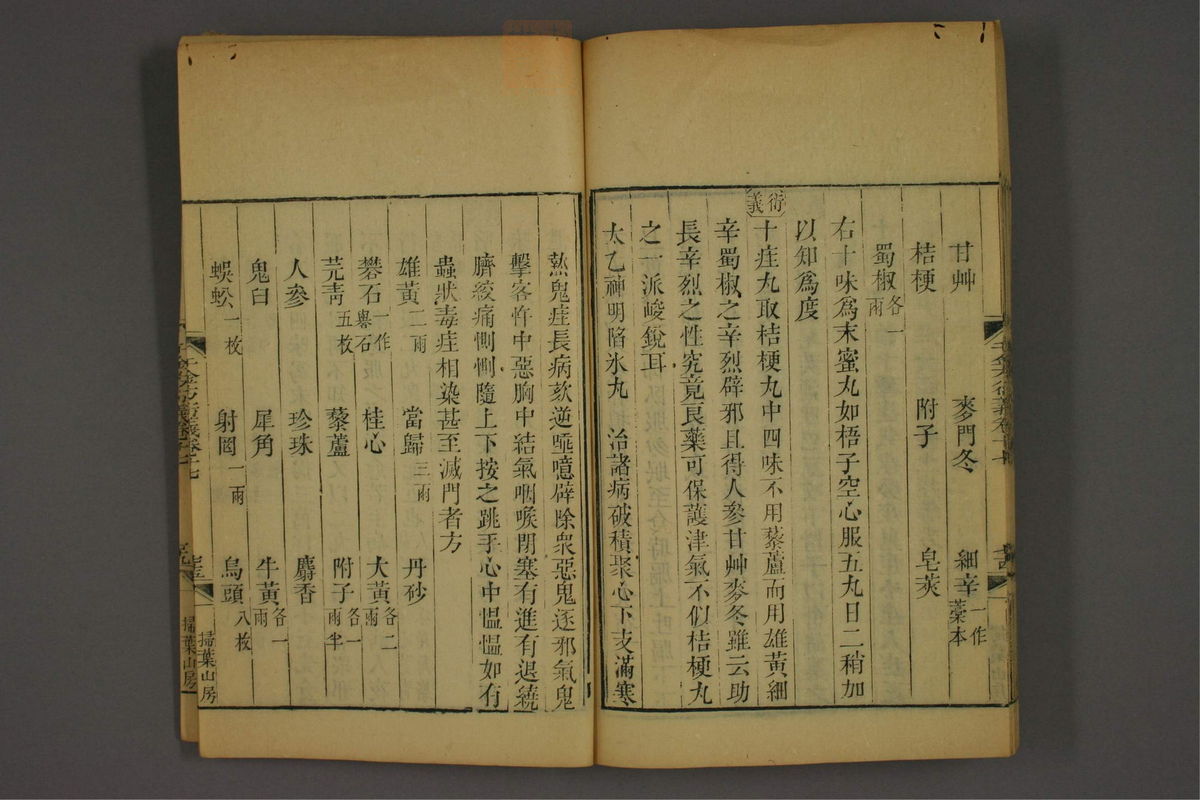 甘艸 麥門冬 細辛一作藁本
桔梗 附子 皂莢
蜀椒各一兩
右十味爲末蜜丸如梧子空心服五丸日二稍加
以知爲度
衍義
十疰丸取桔梗丸中四味不用藜蘆而用雄黃細
辛蜀椒之辛烈辟邪且得人參甘艸麥冬雖云助
長辛烈之性究竟良藥可保護津氣不似桔梗丸
之一派峻銳耳
太乙神明陷氷丸 治諸病破積聚心下支滿寒
熱鬼疰長病欬逆唾噫辟除衆惡鬼逐邪氣鬼
擊客忤中惡胸中結氣咽喉閉塞有進有退繞
臍絞痛惻惻隨上下按之跳手心中愠愠如有
蟲狀毒疰相染甚至滅門者方
雄黃二兩 當歸三兩 丹砂
礬石一作礜石 桂心 大黃各二兩
芫靑五枚 藜蘆 附子各一兩半
人參 珍珠 麝香
鬼臼 犀角 牛黃各一兩
蜈蚣一枚 射罔一兩 烏頭八枚
掃葉山房